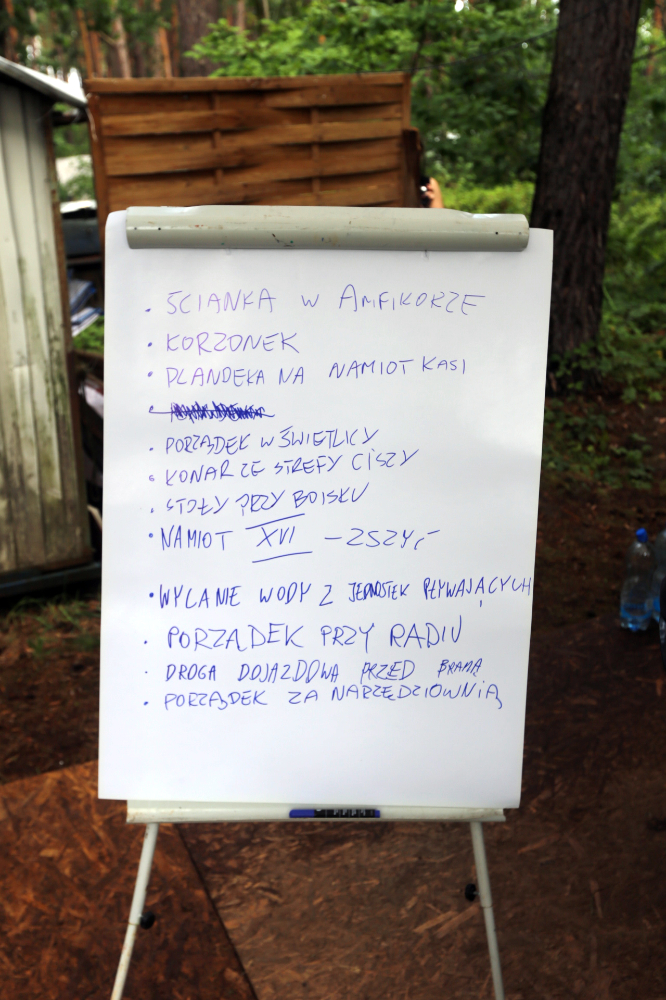 • ŚCIANKA W AMFIKORZE
• KORZONEK
• PLANDEKA NA NAMIOT KASI
• PORZĄDEK W ŚWIETLICY
• KONARZE STREFY CISZY
• STOŁY PRZY BOISKU
• NAMIOT XVI – ZSZYĆ
• WYLANIE WODY Z JEDNOSTEK PŁYWAJĄCYCH
• PORZĄDEK PRZY RADIU
• DROGA DOJAZDOWA PRZED BRAMĄ
• PORZĄDEK ZA NARZĘDZIOWNIĄ